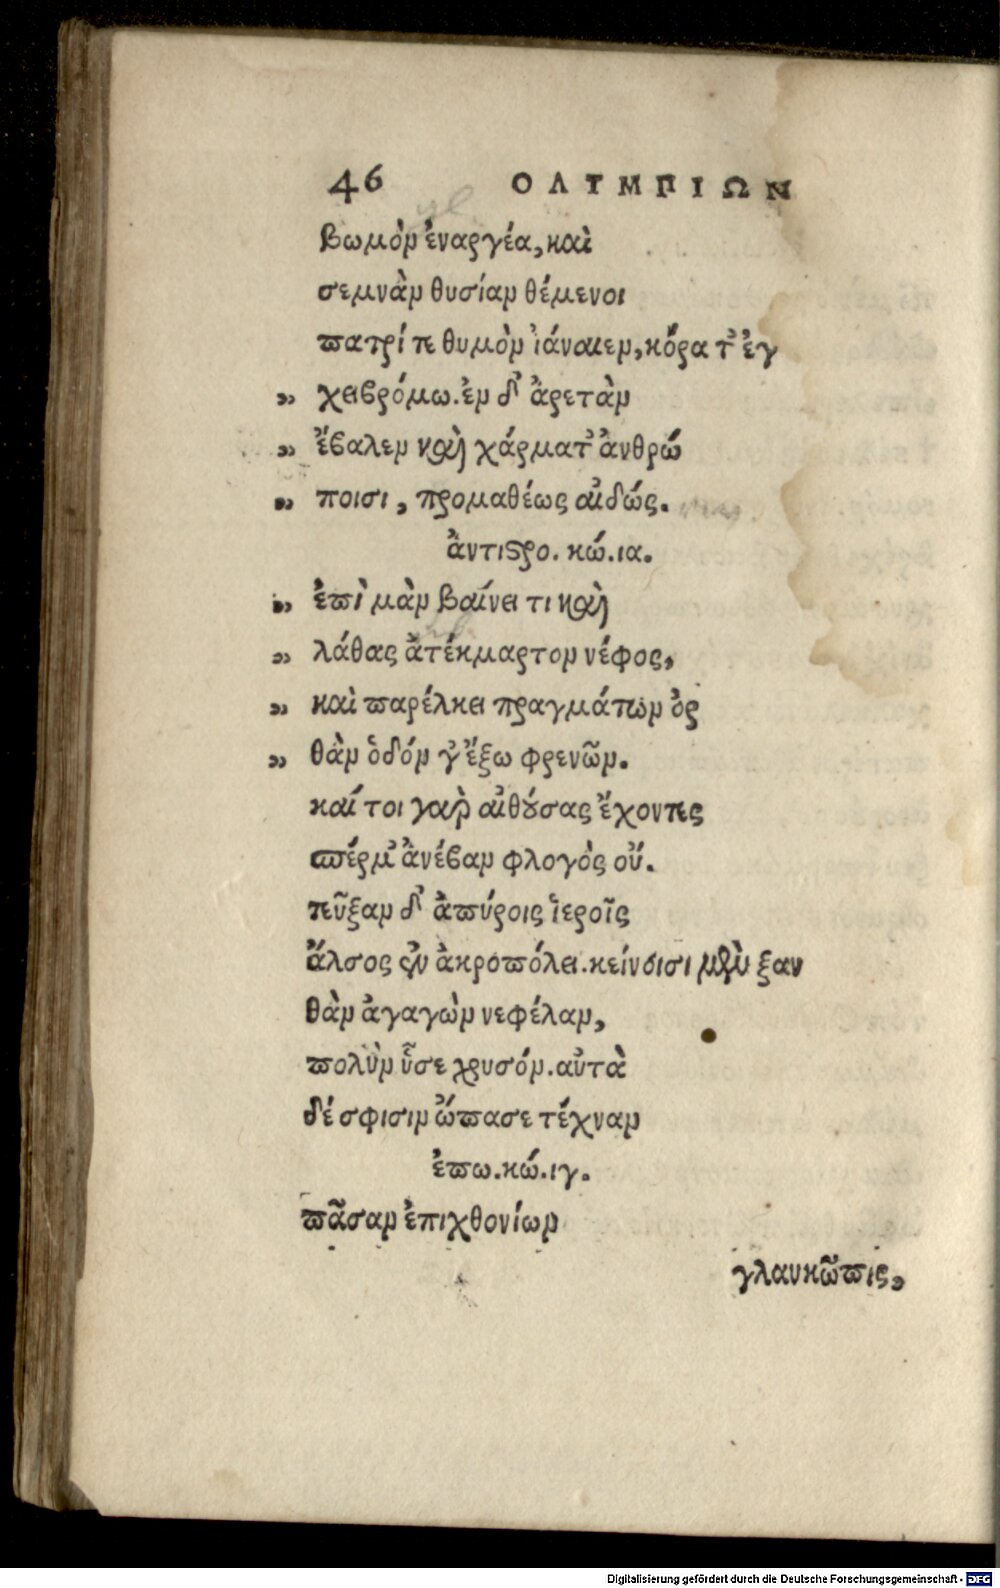 46 ΟΛΥΜΠΙΩΝ
βωμὸν ἐναργέα, καὶ
σεμνὰν θυσίαν θέμενοι
πατρί τε θυμὸν ἰάναιεν, κόρα τ' ἐγ
" χειβρόμω. ἐν δ' ἀρετὰν
" ἔβαλεν καὶ χάρματ' ἀνθρώ
" ποισι, προμαθέως αἰδώς.
ἀντιστρο. κώ. ια.
" ἐπὶ μὰν βαίνει τι καὶ
" λάθας ἀτέκμαρτον νέφος,
" καὶ παρέλκει πραγμάτων ὀρ
" θὰν ὁδόν γ' ἔξω φρενῶν.
καί τοι γὰρ αἰθούσας ἔχοντες
σπέρμ' ἀνέβαν φλογὸς οὔ.
τεῦξαν δ' ἀπύροις ἱεροῖς
ἄλσος ἐν ἀκροπόλει. κείνοισι μὲν ξαν
θὰν ἀγαγὼν νεφέλαν,
πολὺν ὗσε χρυσόν. αὐτὰ
δέ σφισιν ὤπασε τέχναν
ἐπω. κώ. ιγ.
πᾶσαν ἐπιχθονίων
γλαυκῶπις,
Digitalisierung gefördert durch die Deutsche Forschungsgemeinschaft - DFG